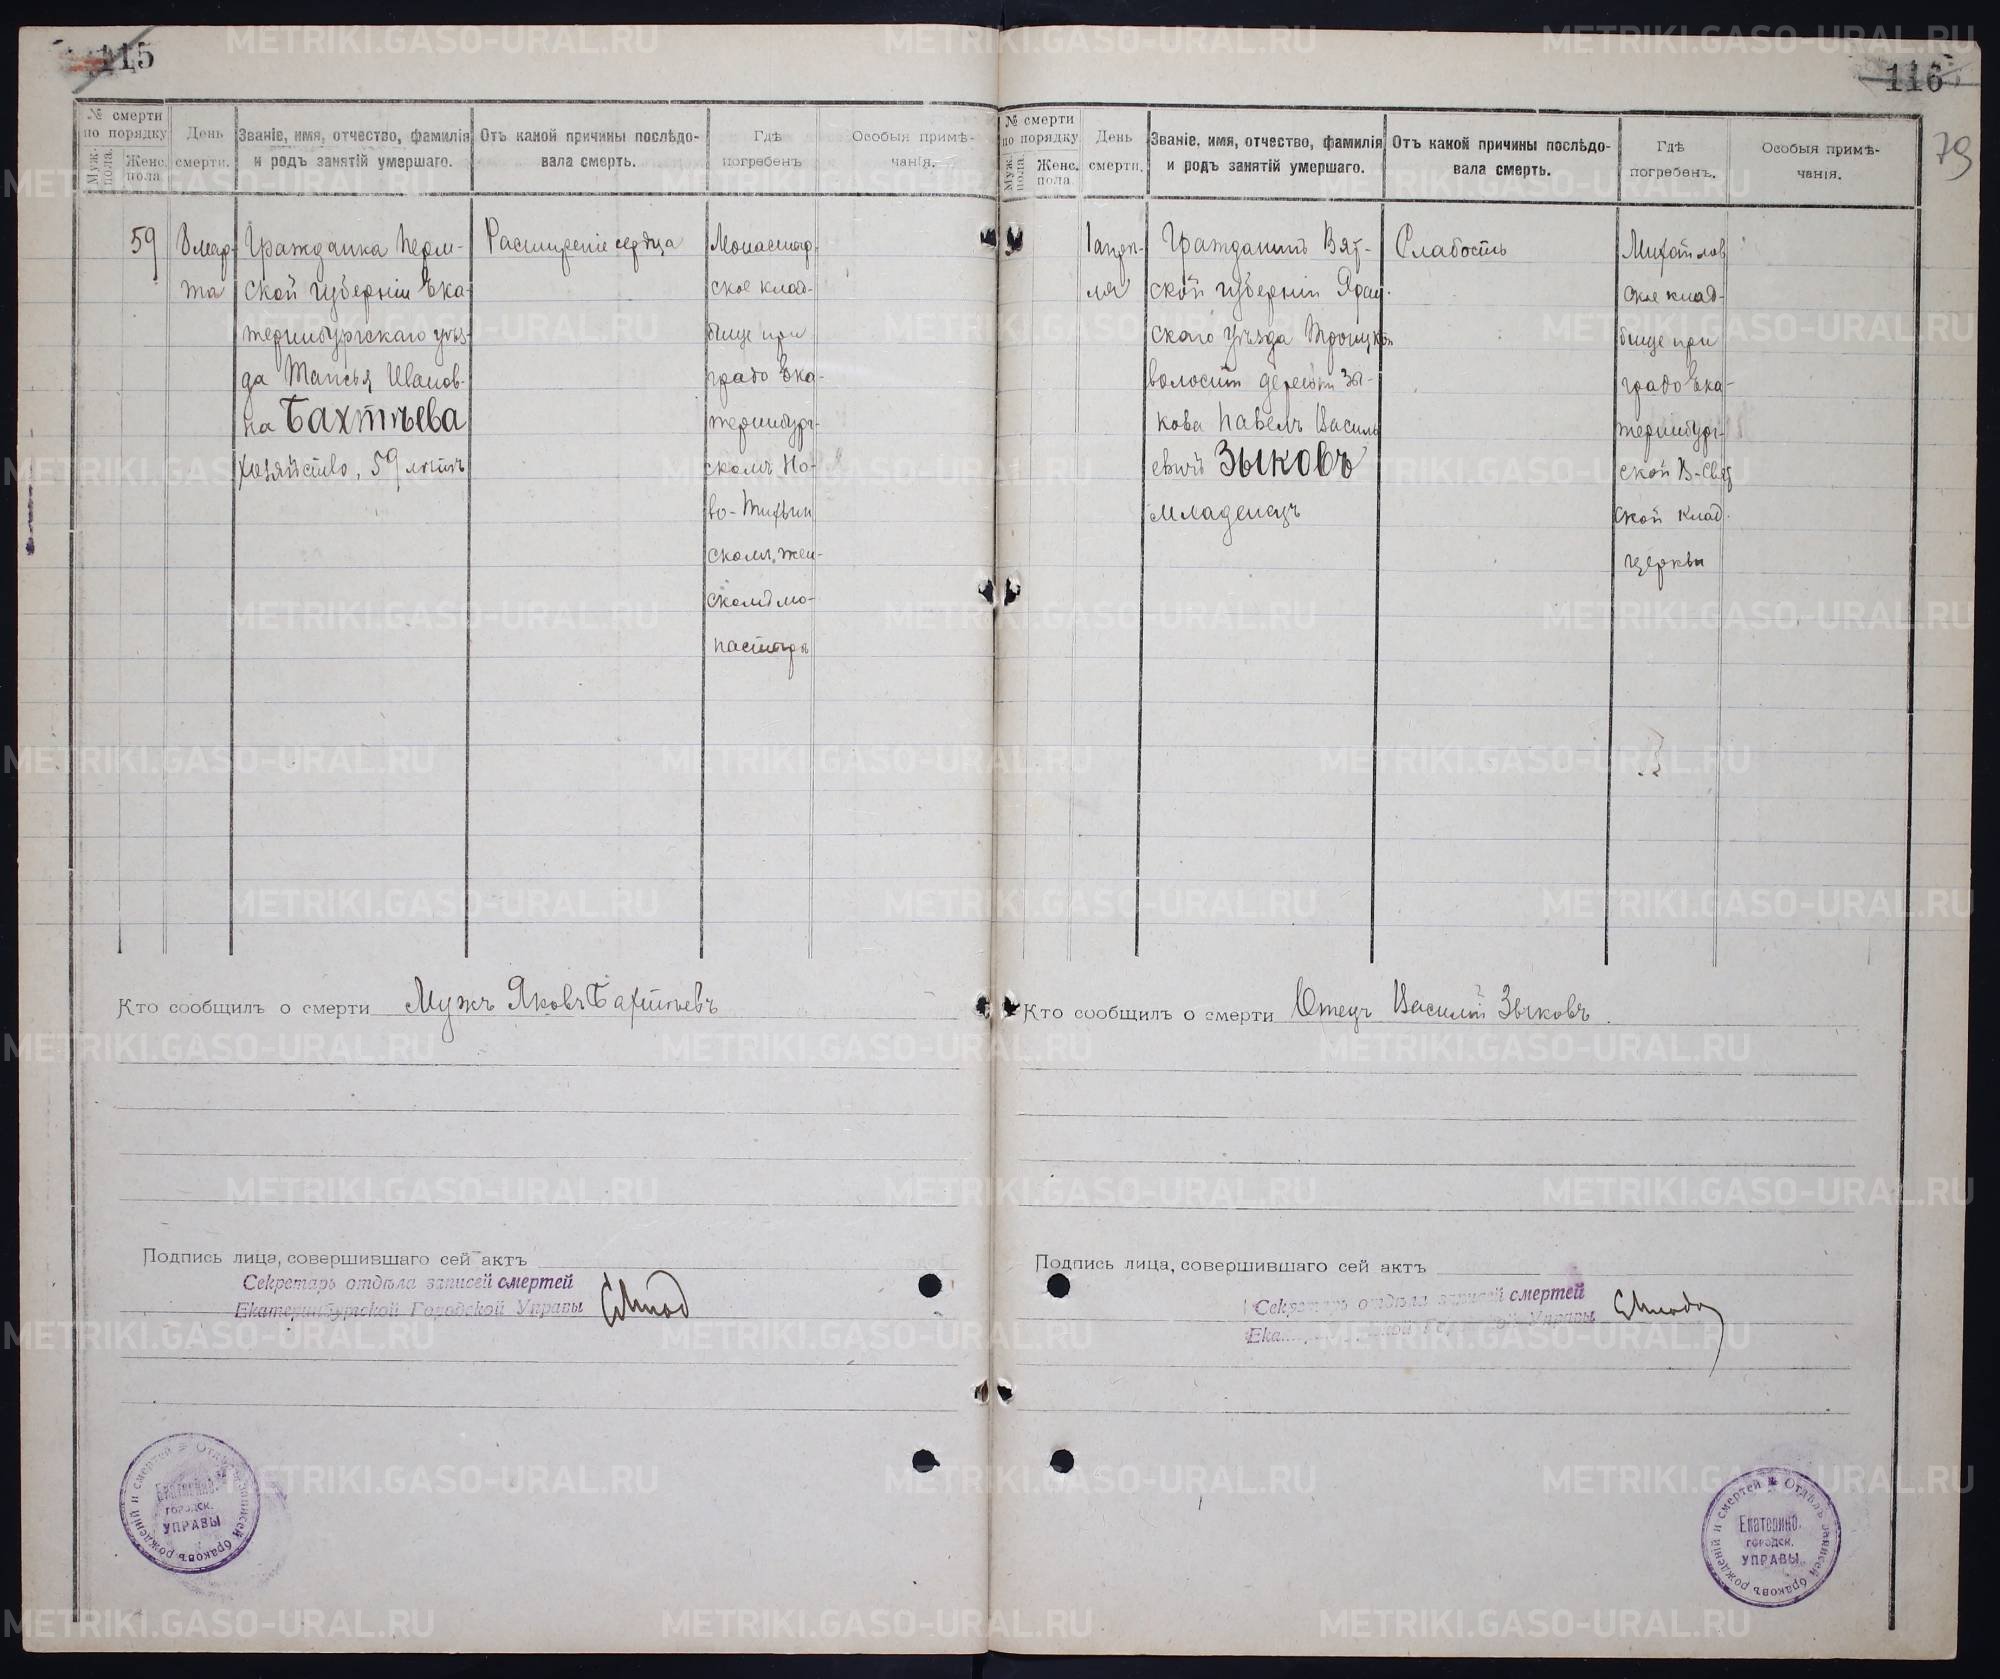 115
№ смерти
по порядку
Муж. пола.
Женс. пола.
День
смерти.
Званіе, имя, отчество, фамилія
и родъ занятій умершаго.
Отъ какой причины послѣдо-
вала смерть.
Гдѣ
погребенъ
Особыя примѣ-
чанія.
59
8 мар-
та
Гражданка Перм-
ской губерніи Ека-
теринбургскаго уѣз-
да Таисья Иванов-
на Бахтѣева
хозяйство, 59 лѣтъ
Расширеніе сердца
Монастыр-
ское клад-
бище при
градо Ека-
теринбург-
скомъ Но-
во-Тихвин
скомъ жен-
скомъ мо-
настырѣ
Кто сообщилъ о смерти Мужъ Яковъ Бахтѣевъ
Подпись лица, совершившаго сей актъ
Секретарь отдѣла записей смертей
Екатеринбургской Городской Управы
Отдѣлъ записей браковъ рожденій и смертей
Екатеринб.
городск.
УПРАВЫ
116
79
№ смерти
по порядку
Муж. пола.
Женс. пола.
День
смерти.
Званіе, имя, отчество, фамилія
и родъ занятій умершаго.
Отъ какой причины послѣдо-
вала смерть.
Гдѣ
погребенъ.
Особыя примѣ-
чанія.
1 апрѣ-
ля
Гражданинъ Вят-
ской губерніи Яран-
скаго уѣзда Троицкой
волости деревни Зы-
кова Павелъ Василь
евичъ Зыковъ
младенецъ
Слабость
Михайлов
ское клад-
бище при
градо Ека-
теринбург-
ской В-Свят
ской клад.
церкви
Кто сообщилъ о смерти Отецъ Василій Зыковъ
Подпись лица, совершившаго сей актъ
Секретарь отдѣла записей смертей
Ека... Городской Управы
Отдѣлъ записей браковъ рожденій и смертей
Екатеринб.
городск.
УПРАВЫ
METRIKI.GASO-URAL.RU